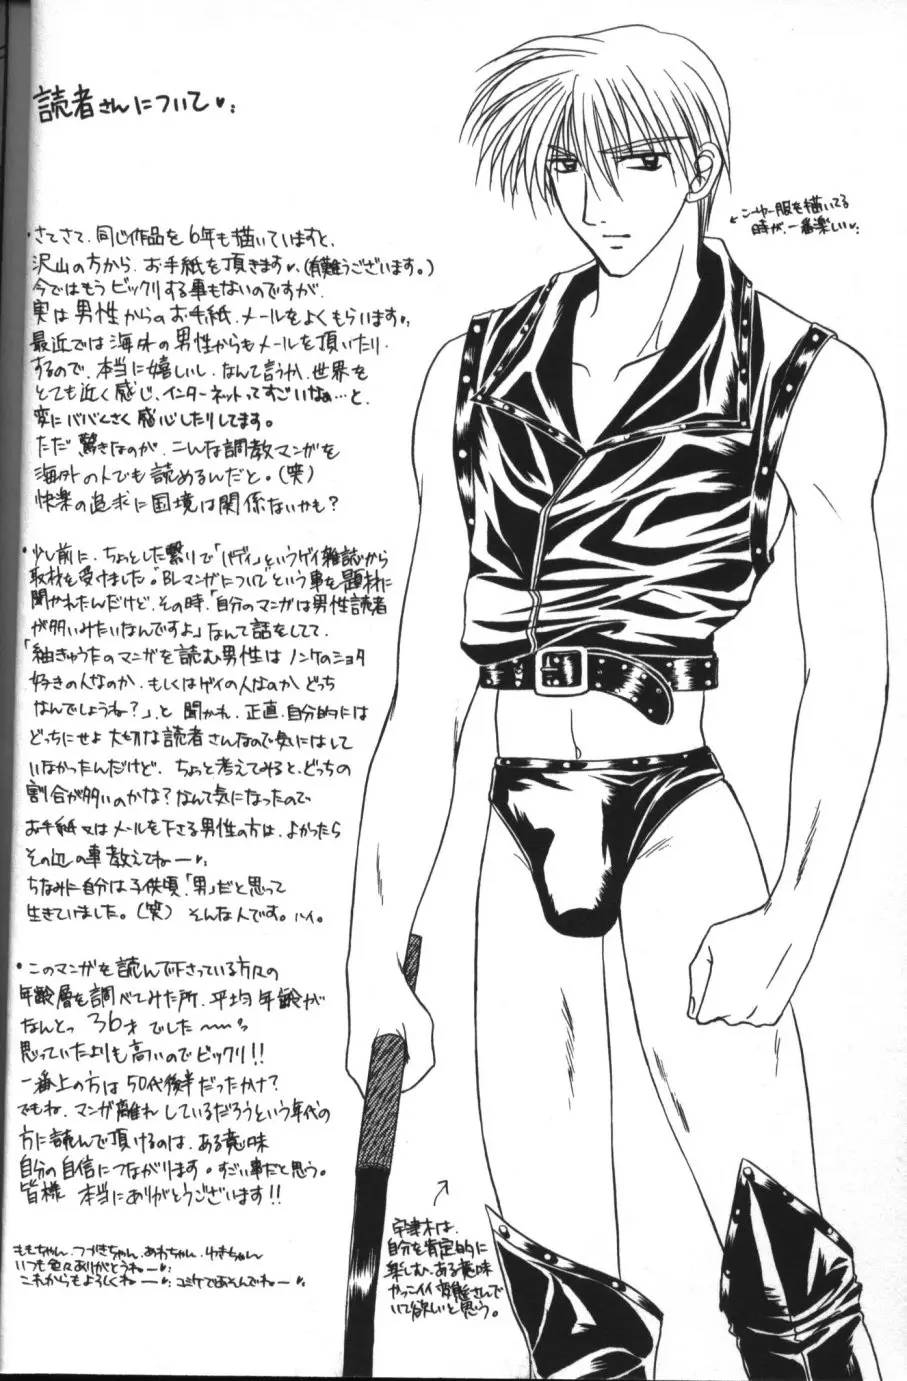 読者さんについて♥
・さてさて、同じ作品を6年も描いていますと、
沢山の方から、お手紙を頂きます♥(有難うございます。)
今ではもうビックリする事もないのですが、
実は男性からのお手紙、メールをよくもらいます♥
最近では海外の男性からもメールを頂いたり
するので、本当に嬉しいし、なんて言うか、世界を
とても近く感じ、インターネットってすごいなぁ…と、
変にババくさく感心したりしてます。
ただ驚きなのが、こんな調教マンガを
海外の人でも読めるんだと。(笑)
快楽の追求に国境は関係ないかも?
・少し前に、ちょっとした繋りで「バディ」というゲイ雑誌から
取材を受けました。"BLマンガについて"という事を題材に
聞かれたんだけど、その時、「自分のマンガは男性読者
が多いみたいなんですよ」なんて話をしてて、
「紬きゅうたのマンガを読む男性はノンケのショタ
好きの人なのか、もしくはゲイの人なのか、どっち
なんでしょうね?」、と聞かれ、正直、自分的には
どっちにせよ大切な読者さんなので気にはして
いなかったんだけど、ちょっと考えてみると、どっちの
割合が多いのかな?なんて気になったので
お手紙又はメールを下さる男性の方は、よかったら
その辺の事教えてねー♥
ちなみに自分は子供頃、「男」だと思って
生きていました。(笑) そんな人です。ハイ。
・このマンガを読んで下さっている方々の
年齢層を調べてみた所、平均年齢が
なんとっ 36才でした〜
思っていたよりも高いのでビックリ!!
一番上の方は50代後半だったかナ?
でもね、マンガ離れしているだろうという年代の
方に読んで頂けるのは、ある意味
自分の自信につながります。すごい事だと思う。
皆様 本当にありがとうございます!!
ももちゃん、つづきちゃん、あわちゃん、ゆきちゃん
いつも色々ありがとうねー♥
これからもよろしくねー♥ コミケであそんでねー♥
←こーゆー服を描いてる
時が、一番楽しい♥
宇津木は、
自分を肯定的に
楽しむ、ある意味
かっこイイ変態さんで
いて欲しいと思う。